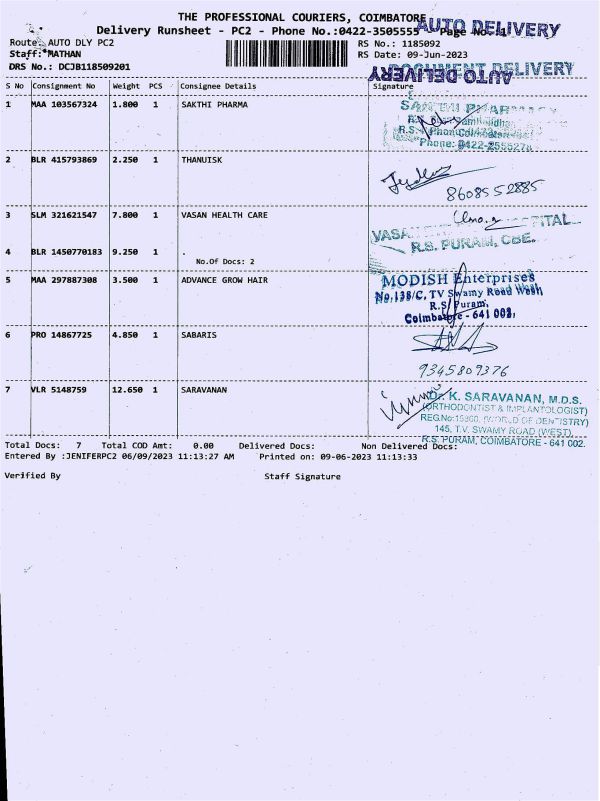 THE PROFESSIONAL COURIERS, COIMBATORE
AUTO DELIVERY
Delivery Runsheet - PC2 - Phone No.:0422-3505555 Page No.:1
Route: AUTO DLY PC2 RS No.: 1185092
Staff: MATHAN RS Date: 09-Jun-2023
DRS No.: DCJB118509201
DOCUMENT DELIVERY
AUTO DELIVERY
S No Consignment No Weight PCS Consignee Details Signature
1 MAA 103567324 1.800 1 SAKTHI PHARMA
SAKTHI PHARMACY
Phone: 0422-2555278
2 BLR 415793869 2.250 1 THANUISK
8608552885
3 SLM 321621547 7.800 1 VASAN HEALTH CARE
R.S. PURAM, CBE.
4 BLR 1450770183 9.250 1 .
No.Of Docs: 2
5 MAA 297887308 3.500 1 ADVANCE GROW HAIR
MODISH Enterprises
No.138/C, TV Swamy Road West
R.S. Puram,
Coimbatore - 641 002,
6 PRO 14867725 4.850 1 SABARIS
9345809376
7 VLR 5148759 12.650 1 SARAVANAN
Dr. K. SARAVANAN, M.D.S.
(ORTHODONTIST & IMPLANTOLOGIST)
145, T.V. SWAMY ROAD (WEST),
R.S. PURAM, COIMBATORE - 641 002.
Total Docs: 7 Total COD Amt: 0.00 Delivered Docs: Non Delivered Docs:
Entered By :JENIFERPC2 06/09/2023 11:13:27 AM Printed on: 09-06-2023 11:13:33
Verified By Staff Signature